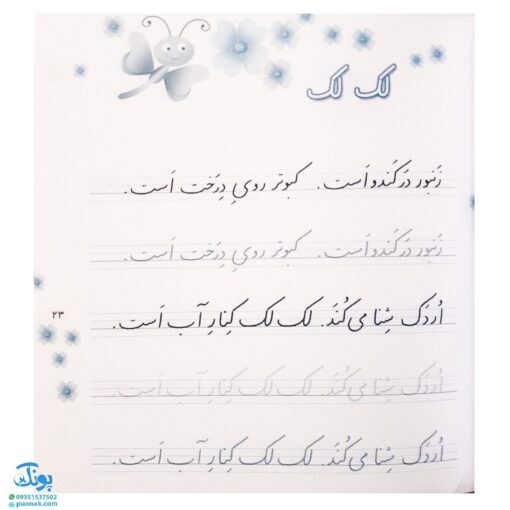 لک لک
زَنبور دَر کَندو اَست. کبوتر رویِ دِرَخت اَست.
زَنبور دَر کَندو اَست. کبوتر رویِ دِرَخت اَست.
اُردَک شِنا می کُنَد. لک لک کِنارِ آب اَست.
۲۳
اُردَک شِنا می کُنَد. لک لک کِنارِ آب اَست.
اُردَک شِنا می کُنَد. لک لک کِنارِ آب اَست.
پونک
09351537502
puonak.com